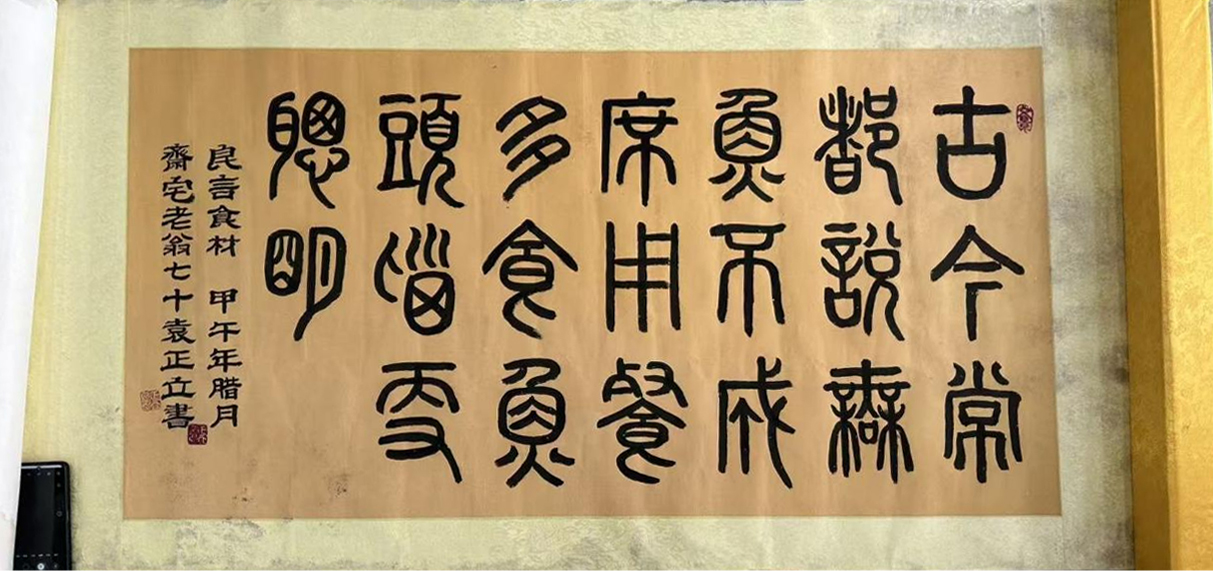 古今常
都說無
魚不成
席用餐
多食魚
頭腦更
聰明
良言食材 甲午年腊月
齋宅老翁七十袁正立書